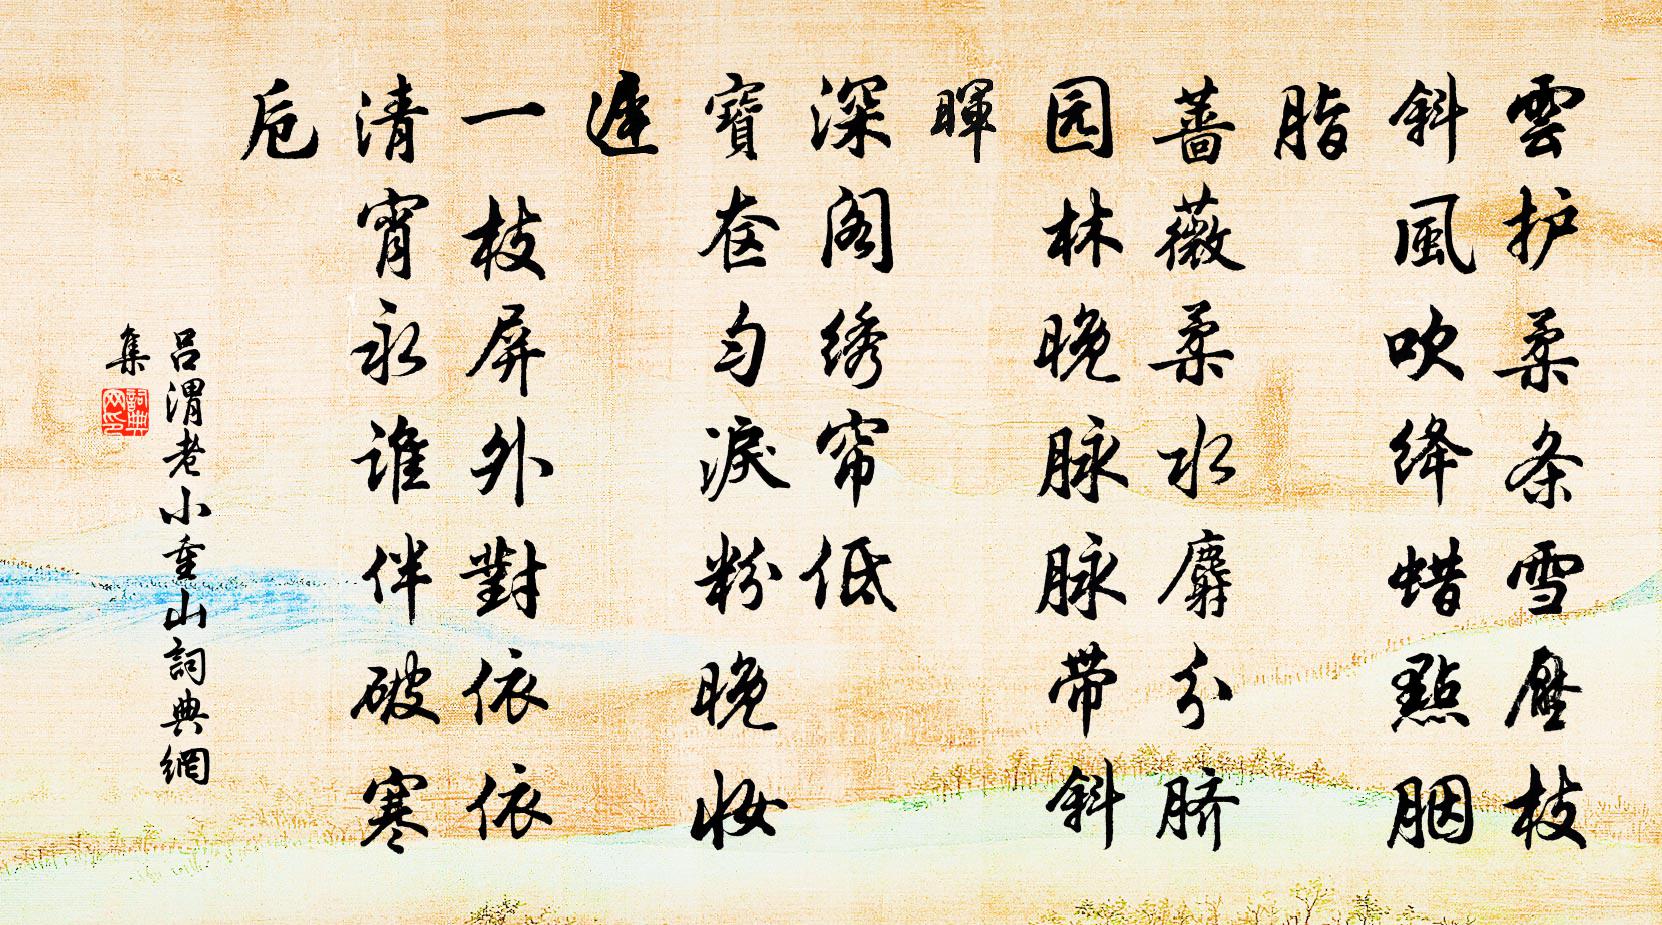 雲护柔条雪壓枝
斜風吹绛蜡點胭
脂
蔷薇柔水麝分脐
园林晚脉脉带斜
暉
深阁绣帘低
寶奁匀淚粉晚妆
遲
一枝屏外對依依
清宵永谁伴破寒
卮
吕渭老小重山詞典網
集
詞典
网印